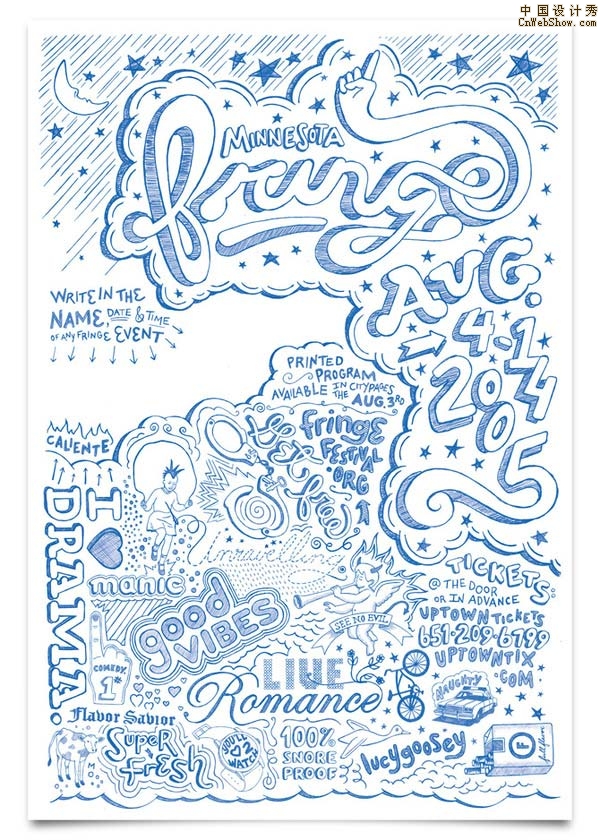 中国设计秀
CnWebShow.com
MINNESOTA
fringe
AUG.
4-14
2005
WRITE IN THE
NAME, DATE & TIME
OF ANY FRINGE EVENT
PRINTED
PROGRAM
AVAILABLE IN CITYPAGES
THE AUG. 3RD
fringe
FESTIVAL
.ORG
CALIENTE
I
DRAMA.
manic
Unravelling
good
VIBES
SEE NO EVIL
TICKETS:
@ THE DOOR
OR IN ADVANCE
UPTOWNTICKETS
651·209·6799
UPTOWNTIX
.COM
COMEDY
1#
LIVE
Romance
NAUGHTY
Flavor Savior
SUPER
fresh
MOO
YOU'LL
2
WATCH
100%
SNORE
PROOF
lucygoosey
F